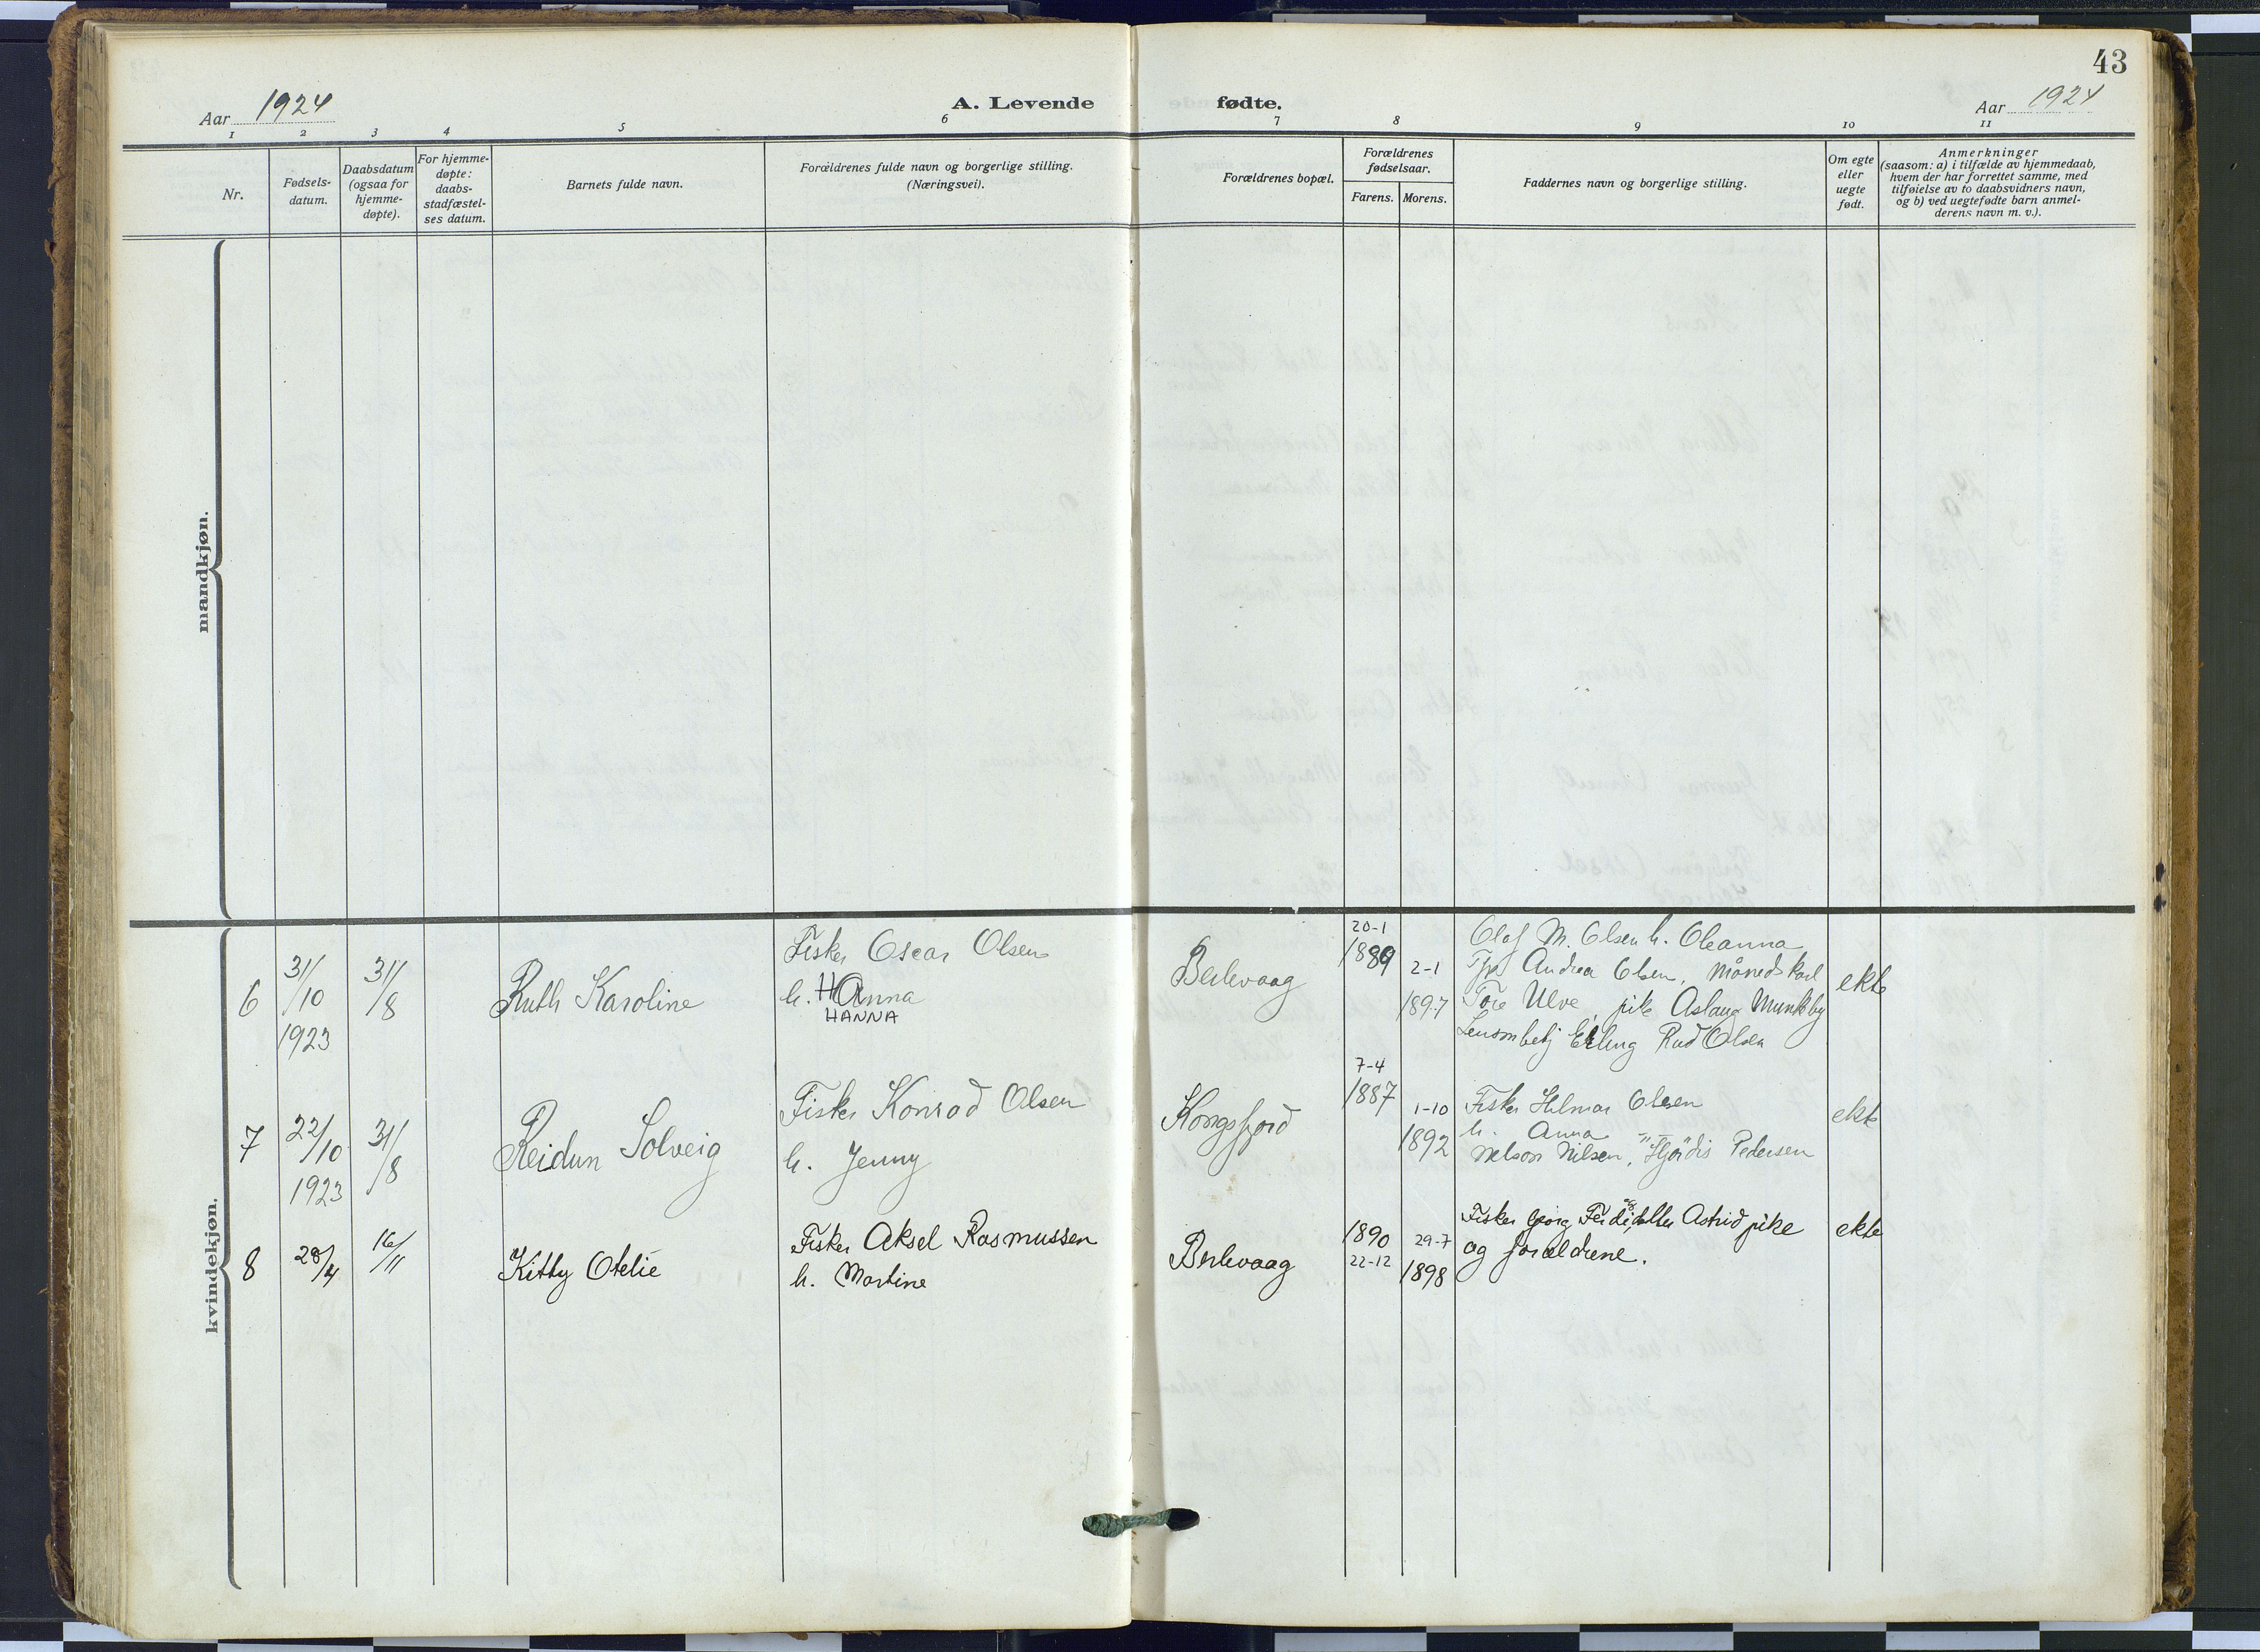 43
Aar 1924
A. Levende fødte.
Aar 1924
1 2 3 4 5 6 7 8 9 10 11
Nr.
Fødsels-
datum.
Daabsdatum
(ogsaa for
hjemme-
døpte).
For hjemme-
døpte:
daabs-
stadfæstel-
ses datum.
Barnets fulde navn.
Forældrenes fulde navn og borgerlige stilling.
(Næringsvei).
Forældrenes bopæl.
Forældrenes
fødselsaar.
Farens. Morens.
Faddernes navn og borgerlige stilling.
Om egte
eller
uegte
født.
Anmerkninger
(saasom: a) i tilfælde av hjemmedaab,
hvem der har forrettet samme, med
tilføielse av to daabsvidners navn,
og b) ved uegtefødte barn anmel-
derens navn m. v.).
mandkjøn.
kvindekjøn.
6
31/10
1923
31/8
Ruth Karoline
Fisker Oscar Olsen
h. Hanna
HANNA
Berlevaag
20-1
1889
2-1
1897
Olaf M. Olsen h. Oleanna
Andrea Olsen, måneds karl
Tore Ulve, pike Aslaug Munkby
Erling Rud Olsen
ekte
7
22/10
1923
31/8
Reidun Solveig
Fisker Konrad Olsen
h. Jenny
Kongsfjord
7-4
1887
1-10
1892
Fisker Hilmar Olsen
h. Anna -"-
Nelson Nilsen, Hjørdis Pedersen
ekte
8
28/4
16/11
Kitty Otelie
Fisker Aksel Rasmussen
h. Martine
Berlevaag
1890
22-12
29-7
1898
Fisker Astrid pike
og forældrene.
ekte